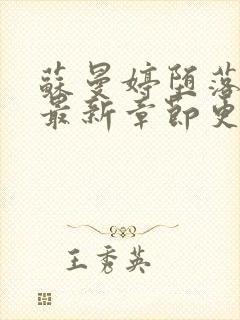 蘇曼婷堕落
最新章節史
王秀英